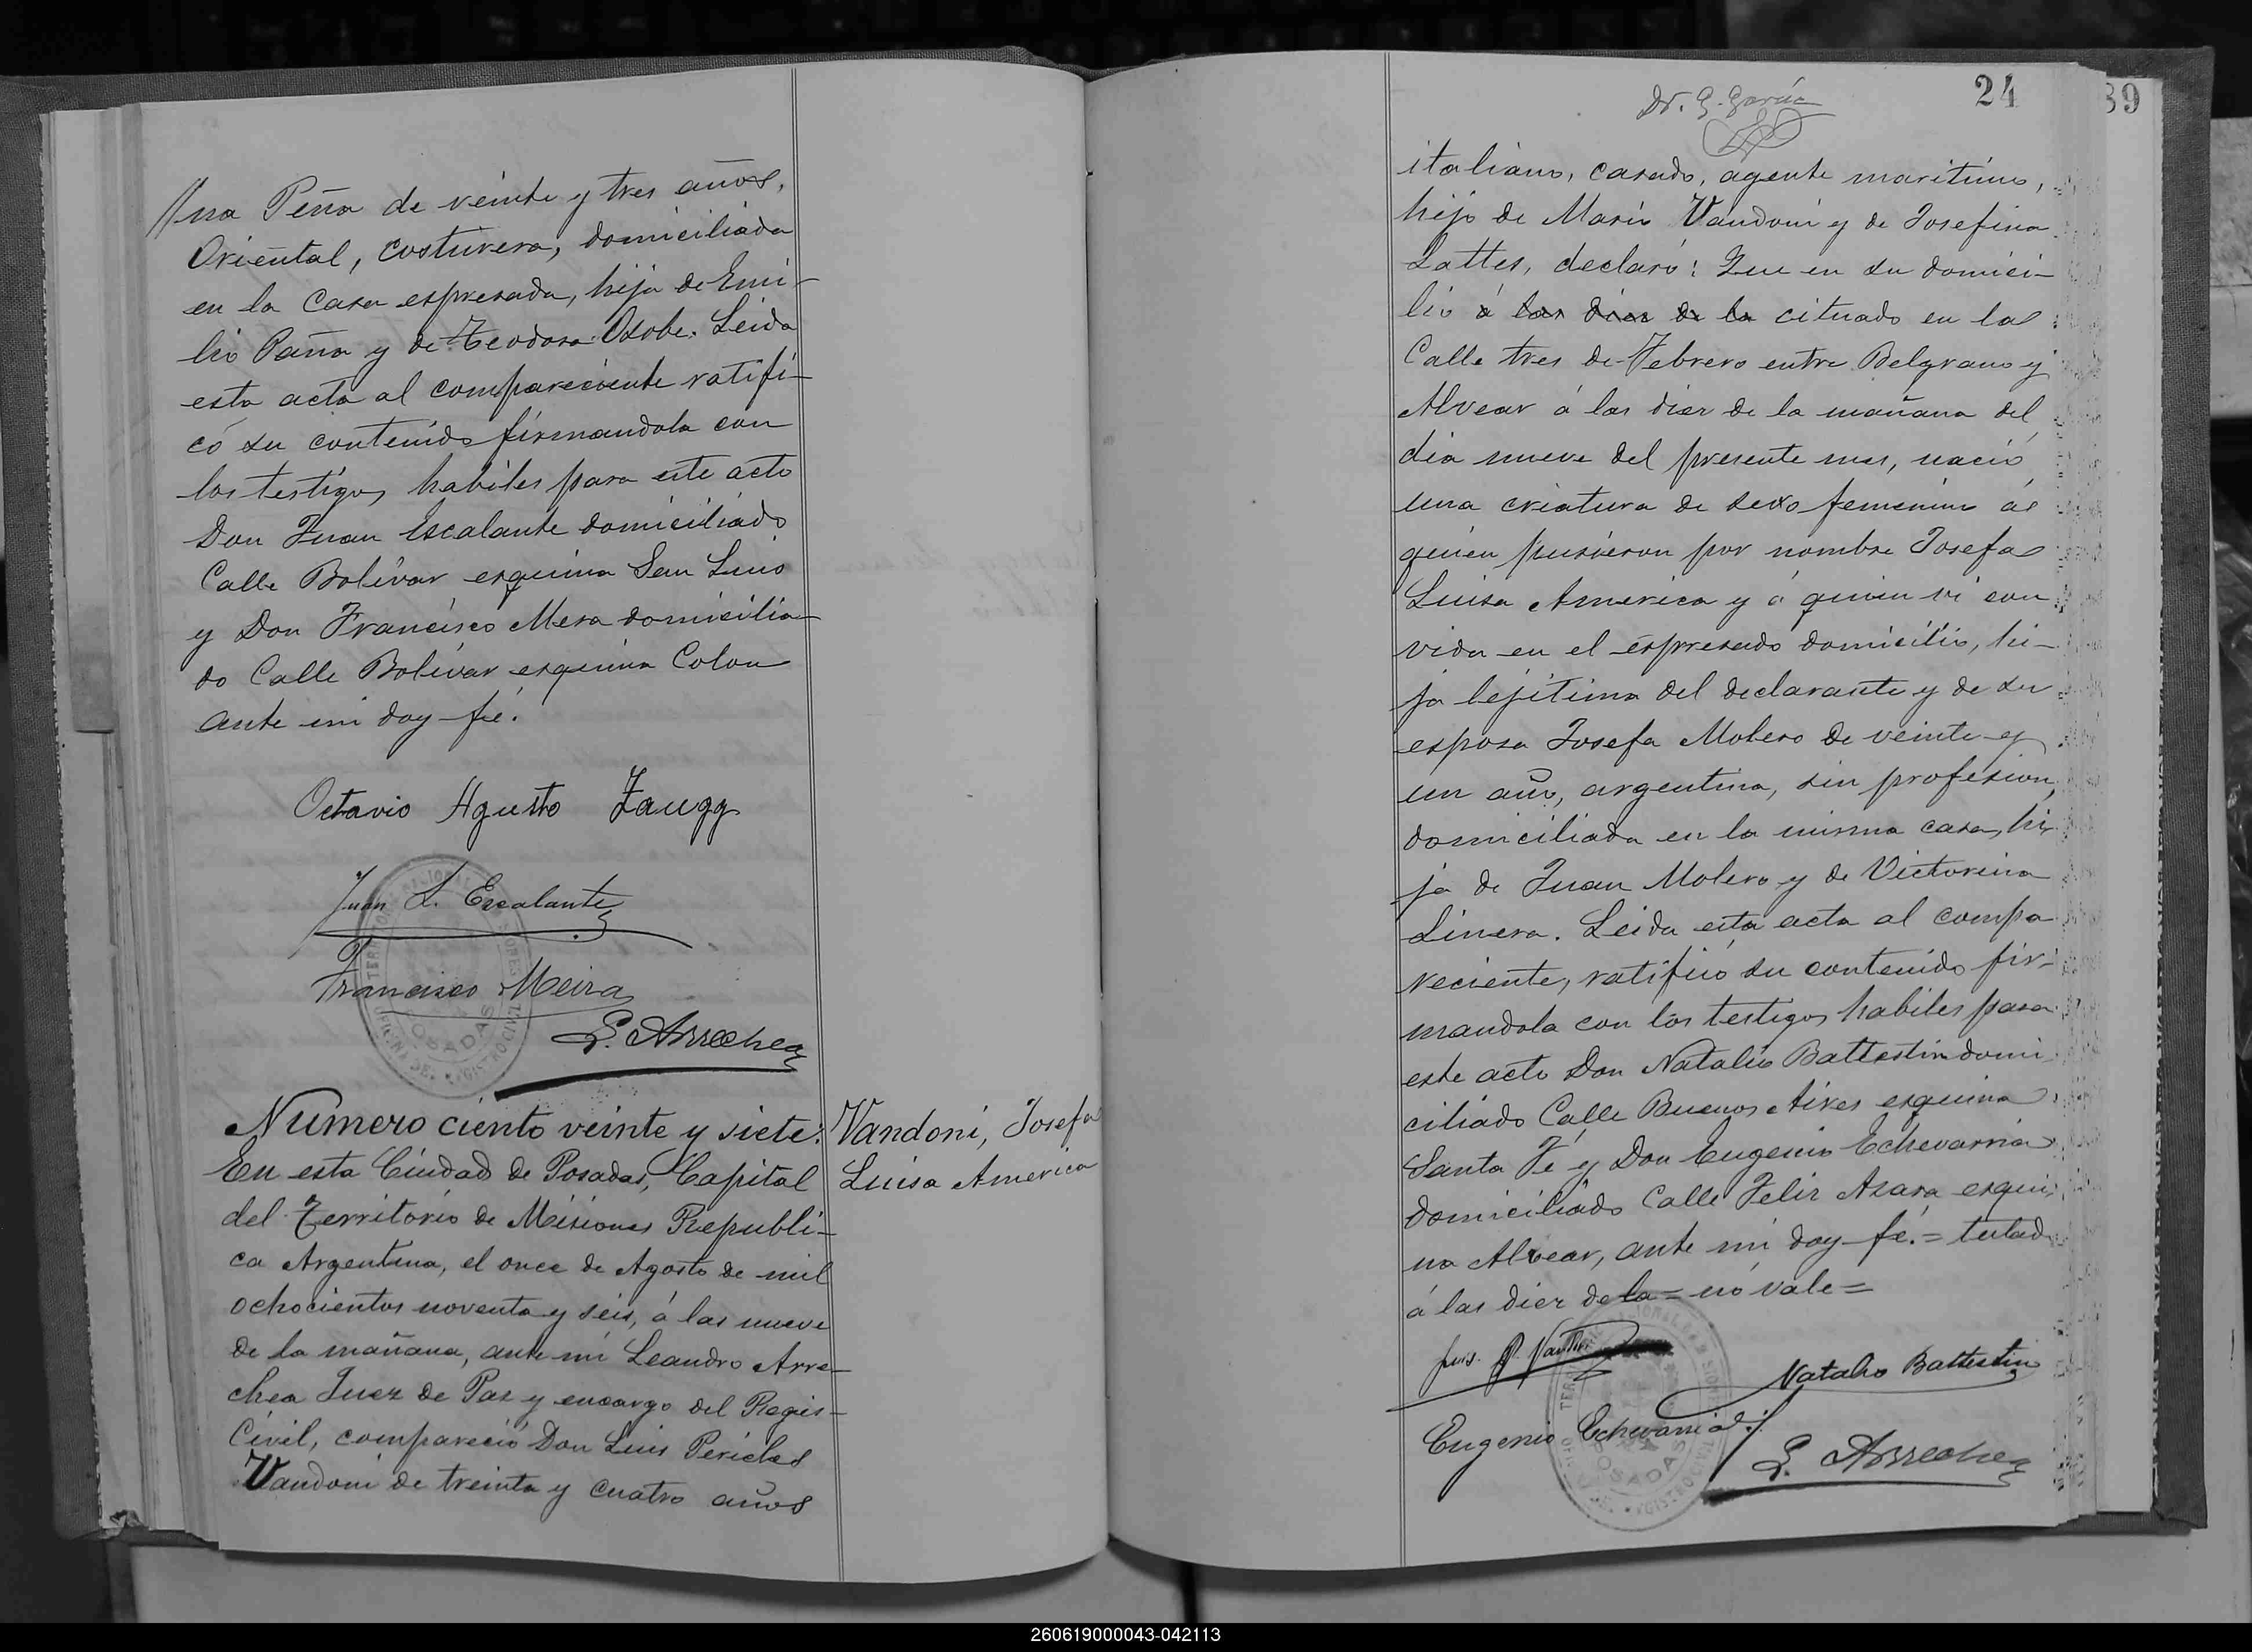 na Peña de veinte y tres años,
Oriental, costurera, domiciliada
en la Casa espresada, hija de Emi-
lio Paña y de Teodora Osobe. Leida
esta acta al compareciente ratifi-
có su contenido firmandola con
los testigos habiles para este acto
Don Juan Escalante domiciliado
Calle Bolívar esquina San Luis
y Don Francisco Mesa domicilia-
do Calle Bolívar esquina Colon
ante mi doy fé.
Octavio Agusto Zaugg
Juan L. Escalante
Francisco Meira
L. Arrechea
Numero ciento veinte y siete.
En esta Ciudad de Posadas, Capital
del Territorio de Misiones Republi-
ca Argentina, el once de Agosto de mil
ochocientos noventa y seis, á las nueve
de la mañana, ante mi Leandro Arre-
chea Juez de Paz y encargo del Regis-
Civil, compareció Don Luis Pericles
Vandoni de treinta y cuatro años
Vandoni, Josefa
Luisa America
Dr. G. García
24
39
italiano, casado, agente maritimo,
hijo de Mario Vandoni y de Josefina
Lattes, declaró: Que en su domici-
lio á las diez de la cituado en la
Calle tres de Febrero entre Belgrano y
Alvear á las diez de la mañana del
dia nueve del presente mes, nació
una criatura de sexo femenino á
quien pusieron por nombre Josefa
Luisa America y á quien vi con
vida en el espresado domicilio, hi-
ja lejitima del declarante y de su
esposa Josefa Molero de veinte y
un año, argentina, sin profesion,
domiciliada en la misma casa, hi-
ja de Juan Molero y de Victorina
Linera. Leida esta acta al compa
reciente, ratificó su contenido fir-
mandola con los testigos habiles para
este acto Don Natalio Battestin domi
ciliado Calle Buenos Aires esquina
Santa Fé y Don Eugenio Echevarria
domiciliado Calle Felix Azara esqui-
na Alvear, ante mi doy fé.= testado
á las diez de la = nó vale =
Luis P. Vandoni
Natalio Battestin
Eugenio Echevarria
L. Arrechea
260619000043-042113